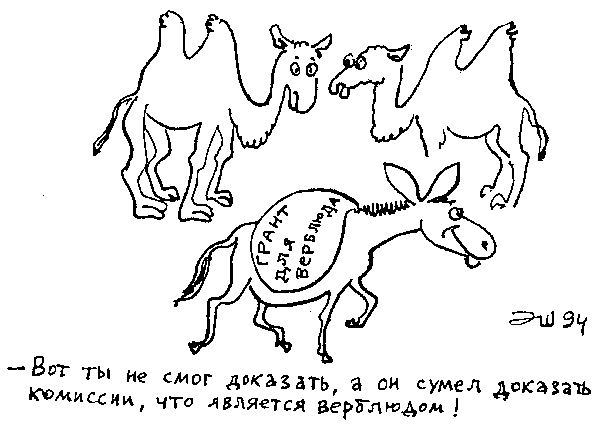 ГРАНТ
ДЛЯ
ВЕРБЛЮДА
ЭШ 94
— Вот ты не смог доказать, а он сумел доказать
комиссии, что является верблюдом!